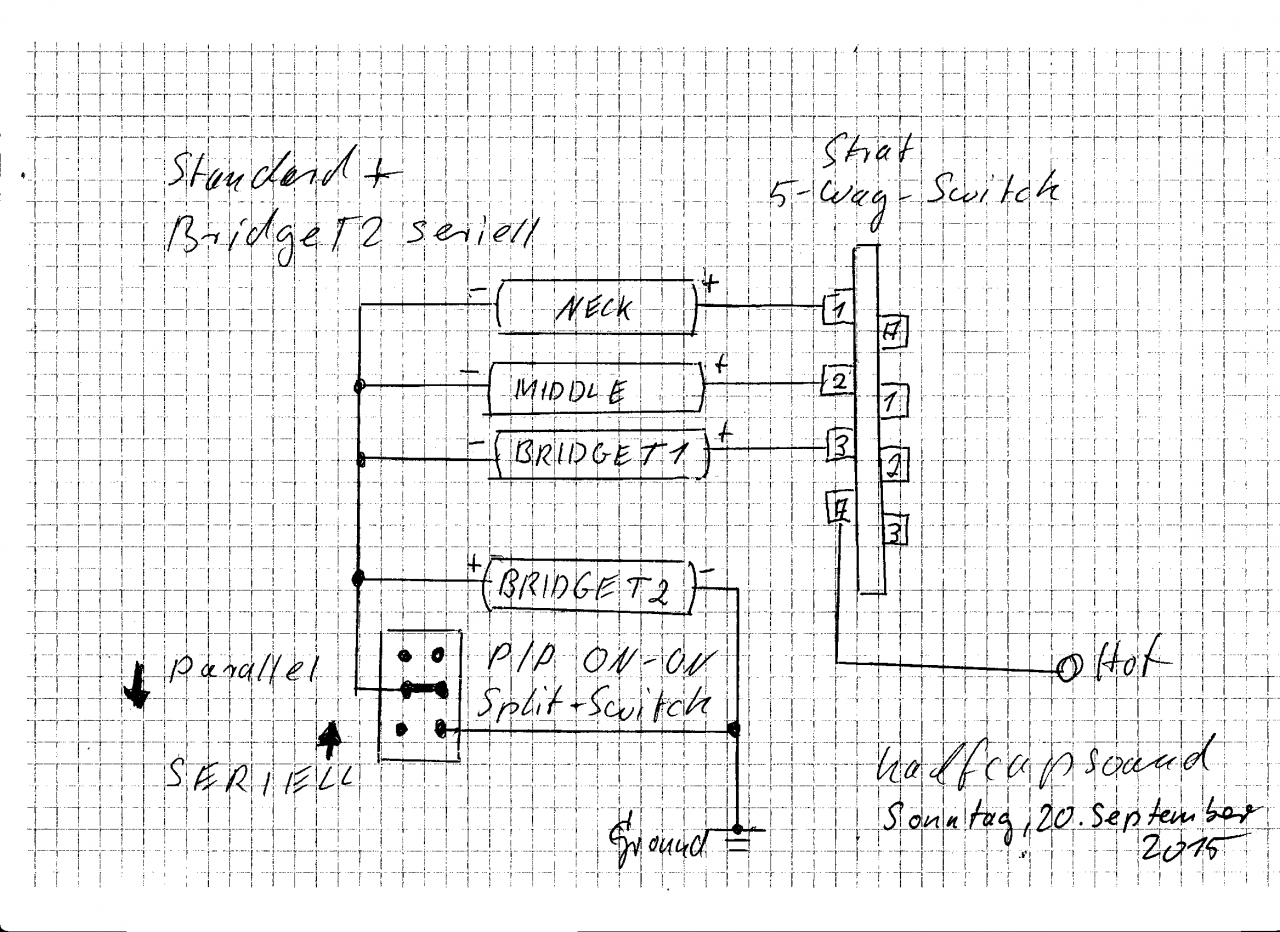 Standard +
Bridge T2 seriell
Strat
5-Way-Switch
- NECK + 1
A
- MIDDLE + 2
1
- BRIDGE T1 + 3
2
A
3
+ BRIDGE T2 -
parallel
P/P ON-ON
Split-Switch
SERIELL
Hot
Ground
Sonntag, 20. September
2015